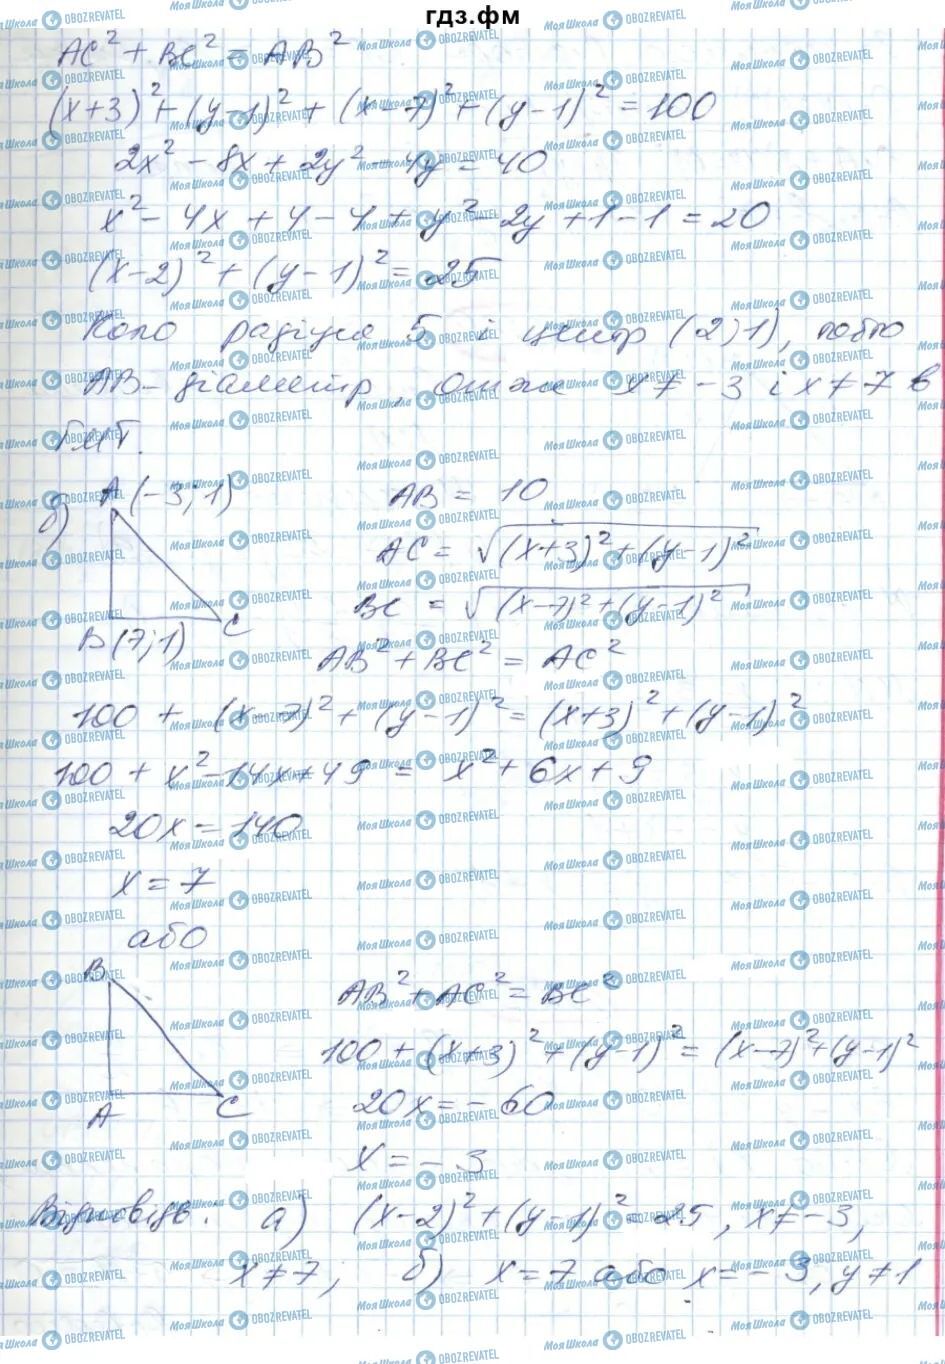 гдз.фм
AC² + BC² = AB²
(x+3)² + (y-1)² + (x-7)² + (y-1)² = 100
2x² - 8x + 2y² - 4y = 40
x² - 4x + 4 - 4 + y² - 2y + 1 - 1 = 20
(x-2)² + (y-1)² = 25
Коло радіуса 5 і центр (2;1), тобто
AB - діаметр, отже x ≠ -3 і x ≠ 7 в
ГМТ.
б) A(-3;1)
AB = 10
AC = √(x+3)² + (y-1)²
BC = √(x-7)² + (y-1)²
C
B(7;1)
AB² + BC² = AC²
100 + (x-7)² + (y-1)² = (x+3)² + (y-1)²
100 + x² - 14x + 49 = x² + 6x + 9
20x = 140
x = 7
або
B
AB² + AC² = BC²
100 + (x+3)² + (y-1)² = (x-7)² + (y-1)²
A C
20x = -60
x = -3
Відповідь: а) (x-2)² + (y-1)² = 25, x ≠ -3,
x ≠ 7; б) x = 7 або x = -3, y ≠ 1
МояШкола OBOZREVATEL